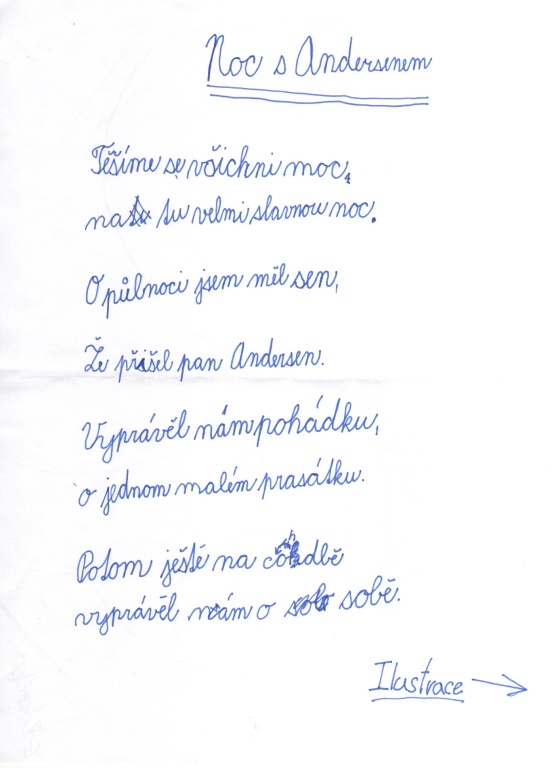 Noc s Andersenem
Těšíme se všichni moc,
na tu velmi slavnou noc.
O půlnoci jsem měl sen,
Že přišel pan Andersen.
Vyprávěl nám pohádku,
o jednom malém prasátku.
Potom ještě na
vyprávěl nám o sobě.
Ilustrace →